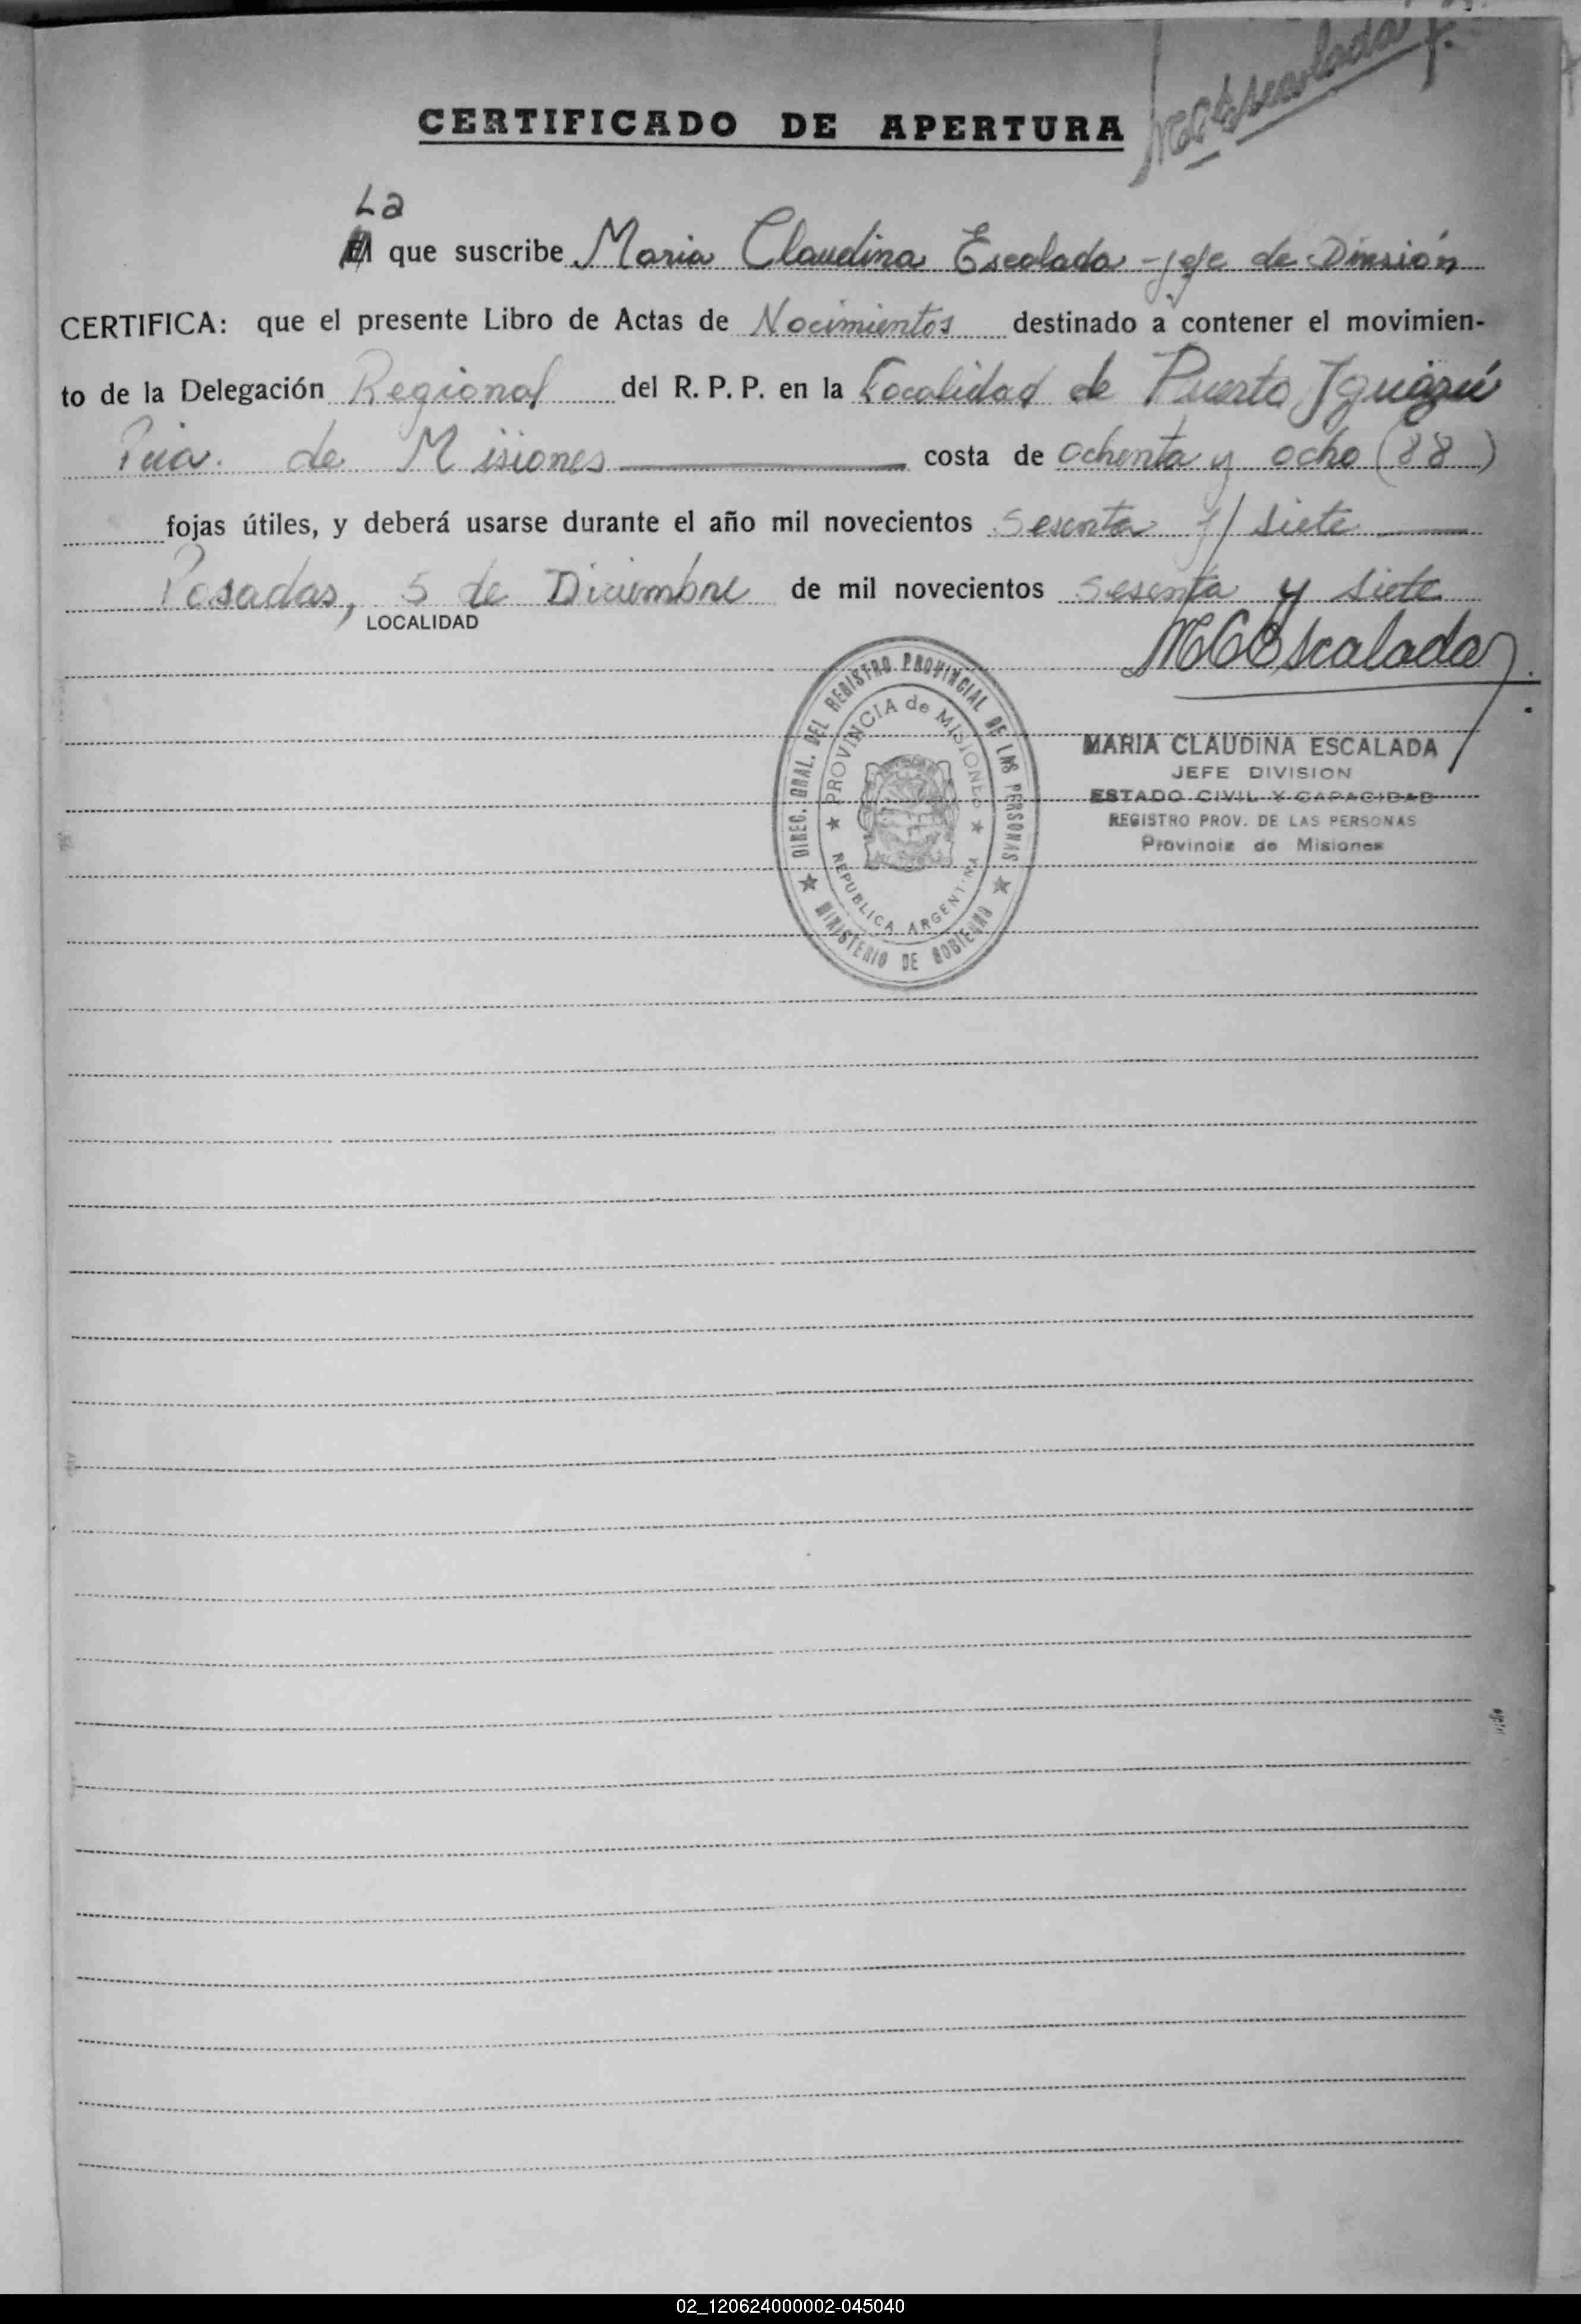 MCEscalada
CERTIFICADO DE APERTURA
La
El que suscribe Maria Claudina Escalada - jefe de Division
CERTIFICA: que el presente Libro de Actas de Nacimientos destinado a contener el movimien-
to de la Delegación Regional del R. P. P. en la Localidad de Puerto Iguazú
Pcia. de Misiones costa de ochenta y ocho (88)
fojas útiles, y deberá usarse durante el año mil novecientos sesenta y siete
Posadas, 5 de Diciembre de mil novecientos sesenta y siete
LOCALIDAD
MCEscalada
DIREC. GRAL. DEL REGISTRO PROVINCIAL DE LAS PERSONAS
PROVINCIA de MISIONES
REPUBLICA ARGENTINA
MINISTERIO DE GOBIERNO
MARIA CLAUDINA ESCALADA
JEFE DIVISION
ESTADO CIVIL Y CAPACIDAD
REGISTRO PROV. DE LAS PERSONAS
Provincia de Misiones
02_120624000002-045040